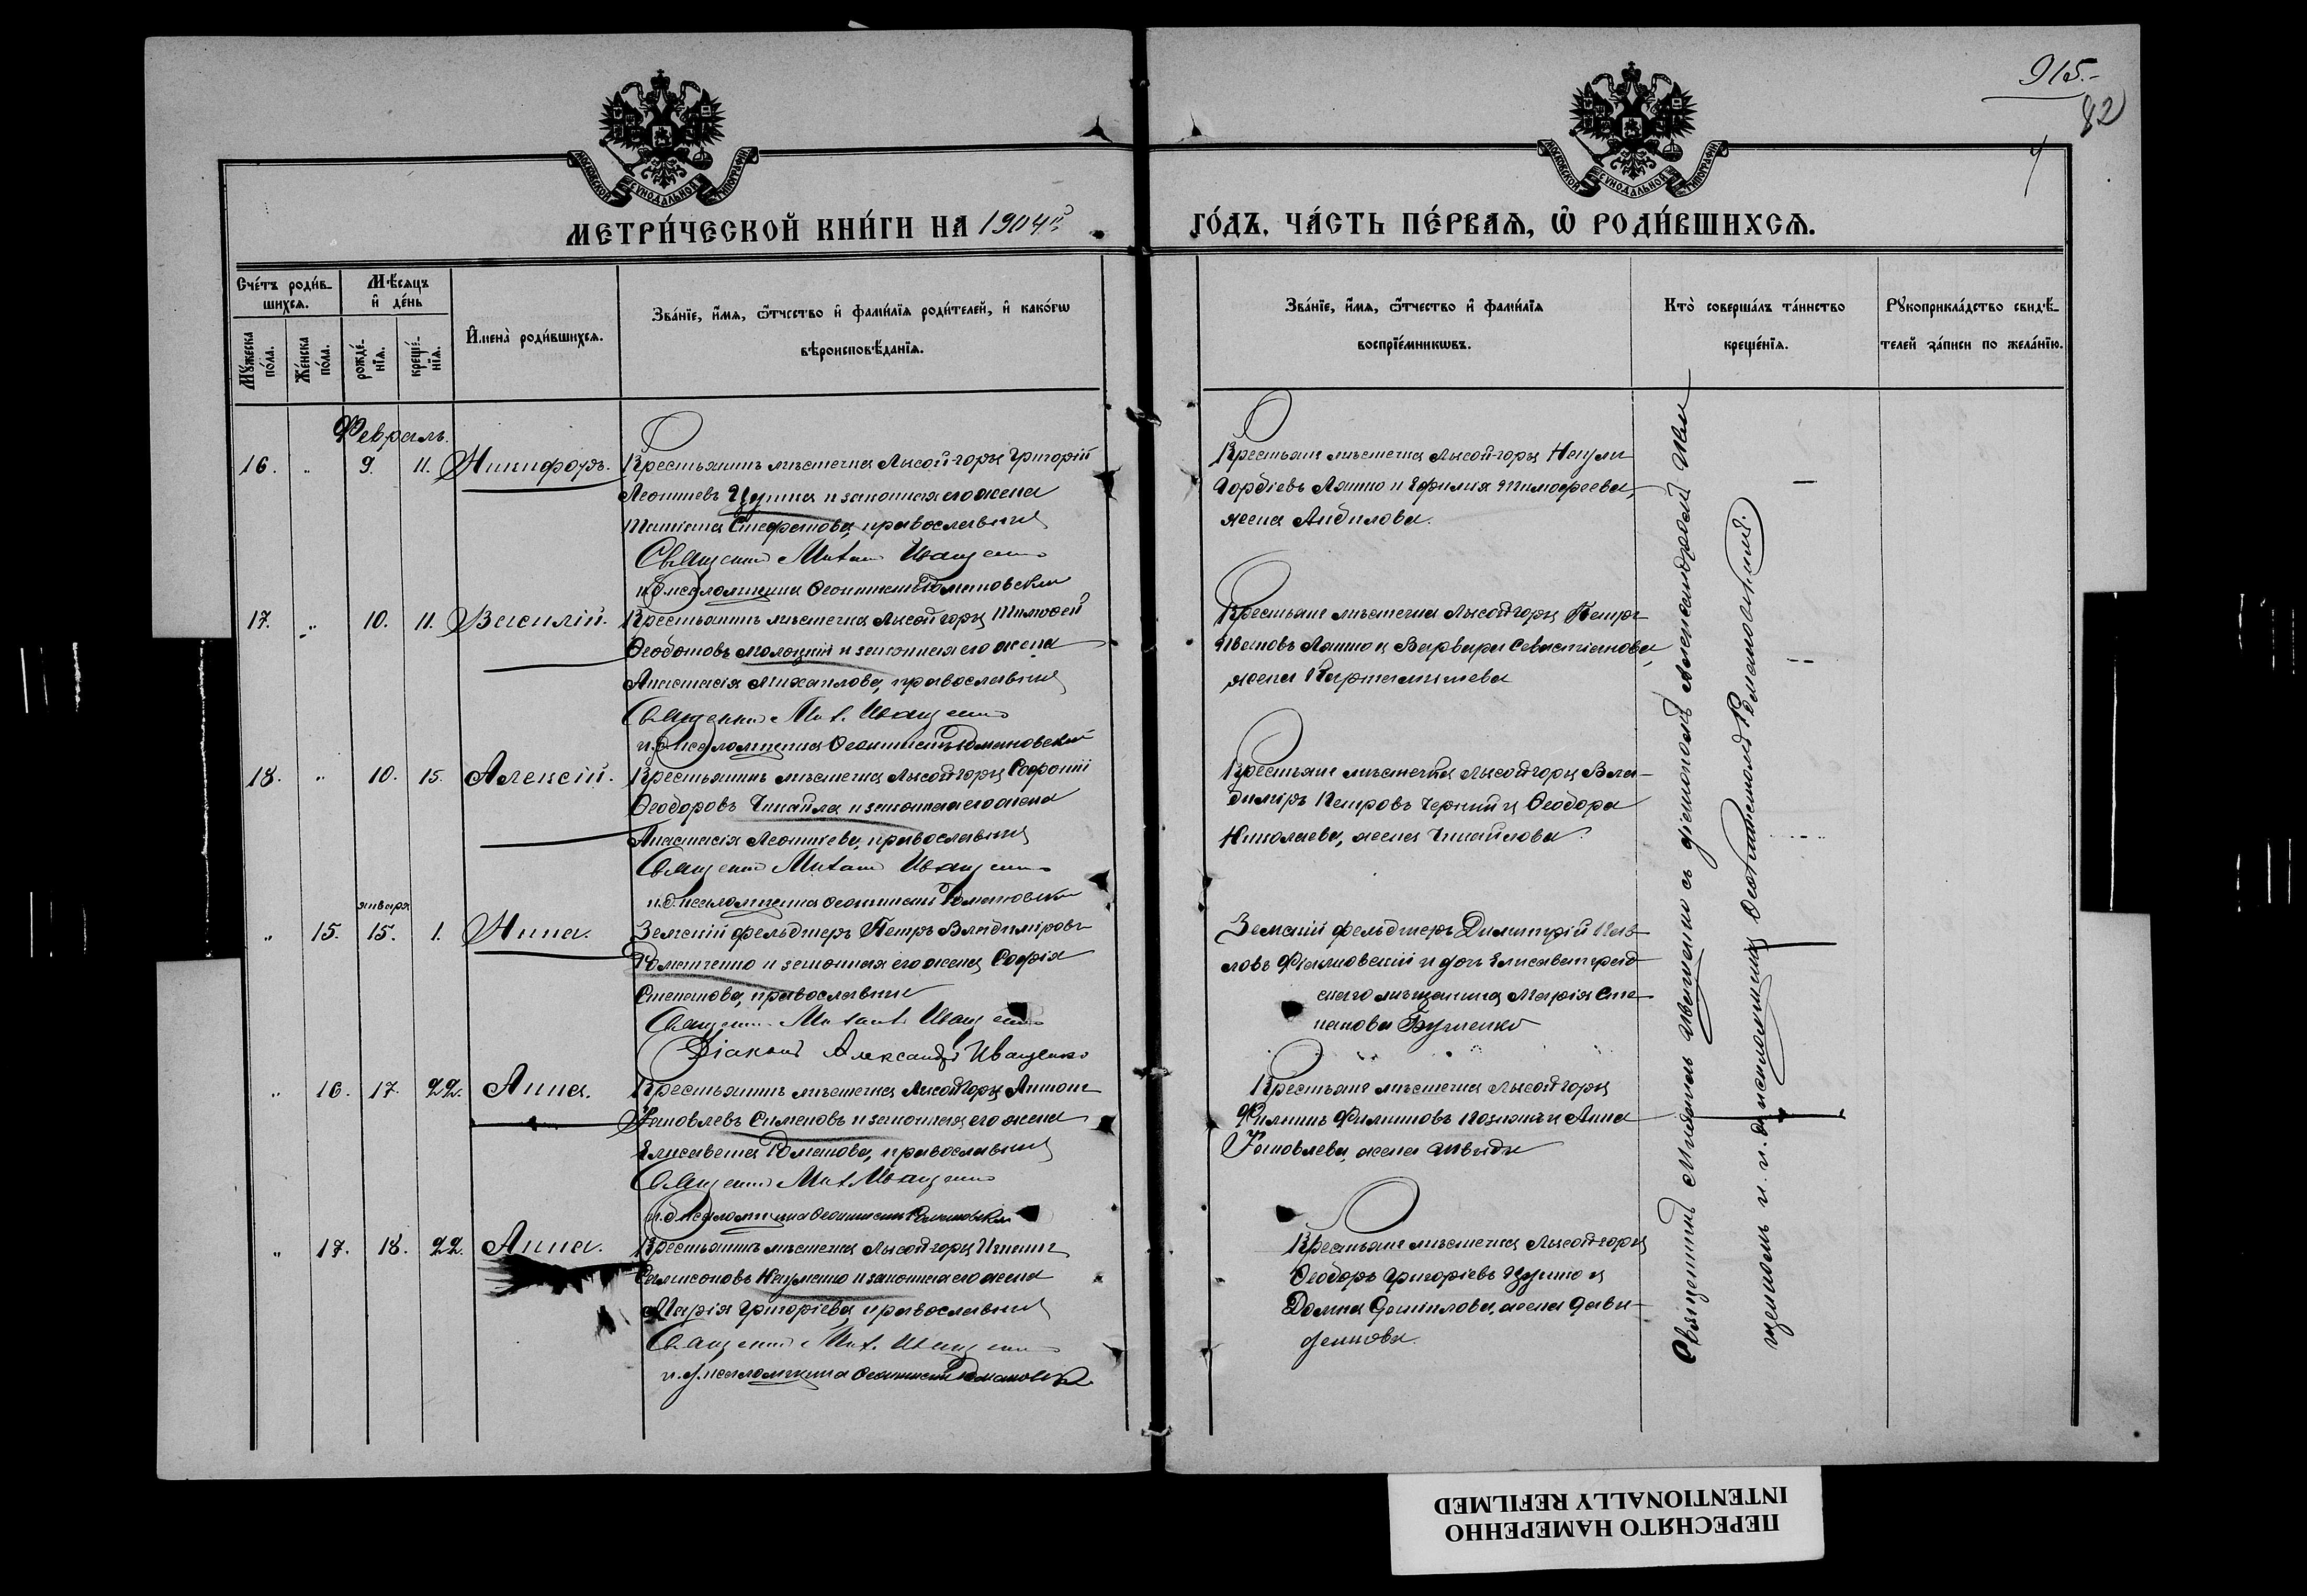 915.-
82
МОСКОВСКОЙ СѴНОДАЛЬНОЙ ТИПОГРАФІИ
МОСКОВСКОЙ СѴНОДАЛЬНОЙ ТИПОГРАФІИ
МЕТРИ́ЧЕСКОЙ КНИ́ГИ НА 1904й
ГО́ДЪ, ЧА́СТЬ ПЕ́РВАѦ, Ѡ РОДИ́ВШИХСѦ.
Сче́тъ роди́в-
шихсѧ.
Мѣ́сѧцъ
и де́нь
Мꙋ́жеска по́ла.
Же́нска по́ла.
рожде́-нїѧ.
креще́-нїѧ.
Имена̀ роди́вшихсѧ.
Зва́нїе, и́мѧ, ѻ́тчество и фами́лїѧ роди́телей, и како́гѡ
вѣроисповѣ́данїѧ.
Зва́нїе, и́мѧ, ѻ́тчество и фами́лїѧ
воспрїе́мникѡвъ.
Кто̀ соверша́лъ та́инство
креще́нїѧ.
Рꙋкоприкла́дство свидѣ́-
телей за́писи по жела́нїю.
Февраль.
16. " 9. 11. Никифоръ.
Крестьянинъ мѣстечка Лысой-горы Григорій
Леонтіевъ Цупка и законная его жена
Татіана Стефанова, православные
Священникъ Митр. Иващенко
и.д. псаломщика Феоктистъ Романовскій
Крестьяне мѣстечка Лысой-горы
Гордіевъ Ляшко и Евфимія Тимофеева,
жена
17. " 10. 11. Василій.
Крестьянинъ мѣстечка Лысой горы Тимофей
Феодотовъ Молоцкій и законная его жена
Анастасія Михайлова, православные
Священникъ Мит. Иващенко
и.д. псаломщика Феоктистъ Романовскій
Крестьяне мѣстечка Лысой горы Петръ
Ивановъ Ляшко и Варвара Севастіанова,
жена
18. " 10. 15. Алексій.
Крестьянинъ мѣстечка Лысой горы Софроній
Феодоровъ Чигайла и законная его жена
Анастасія Леонтіева, православные
Священникъ Митр. Иващенко
и.д. псаломщика Феоктистъ Романовскій
Крестьяне мѣстечка Лысой горы Вла-
диміръ Петровъ Черный и Феодора
Николаева, жена Чигайлова
января
" 15. 15. 1. Нина.
Земскій фельдшеръ Петръ Владиміровъ
Романченко и законная его жена Софія
Степанова, православные
Священникъ Митр. Иващенко
Діаконъ Александръ Иващенко
Земскій фельдшеръ Димитрій Пав-
ловъ и дочь Елисаветград-
скаго мѣщанина Марія Сте-
панова
" 16. 17. 22. Анна.
Крестьянинъ мѣстечка Лысой горы Антонъ
Яковлевъ Сименовъ и законная его жена
Елисавета Романова, православные
Священникъ Мит. Иващенко
и.д. псаломщика Феоктистъ Романовскій
Крестьяне мѣстечка Лысой горы
Филиппъ Филипповъ и Анна
Яковлева, жена
" 17. 18. 22. Анна.
Крестьянинъ мѣстечка Лысой горы Игнатъ
Самсоновъ Науменко и законная его жена
Марія Григоріева, православные
Священникъ Мит. Иващенко
и.д. псаломщика Феоктистъ Романовскій
Крестьяне мѣстечка Лысой горы
Феодоръ Григоріевъ Цупко и
Домна Даніилова, жена Дави-
денкова
Священникъ Митрофанъ Иващенко съ діакономъ Александромъ Ива-
щенкомъ и и.д. псаломщика Феоктистомъ Романовскимъ.
ПЕРЕСНЯТО НАМЕРЕННО
INTENTIONALLY REFILMED